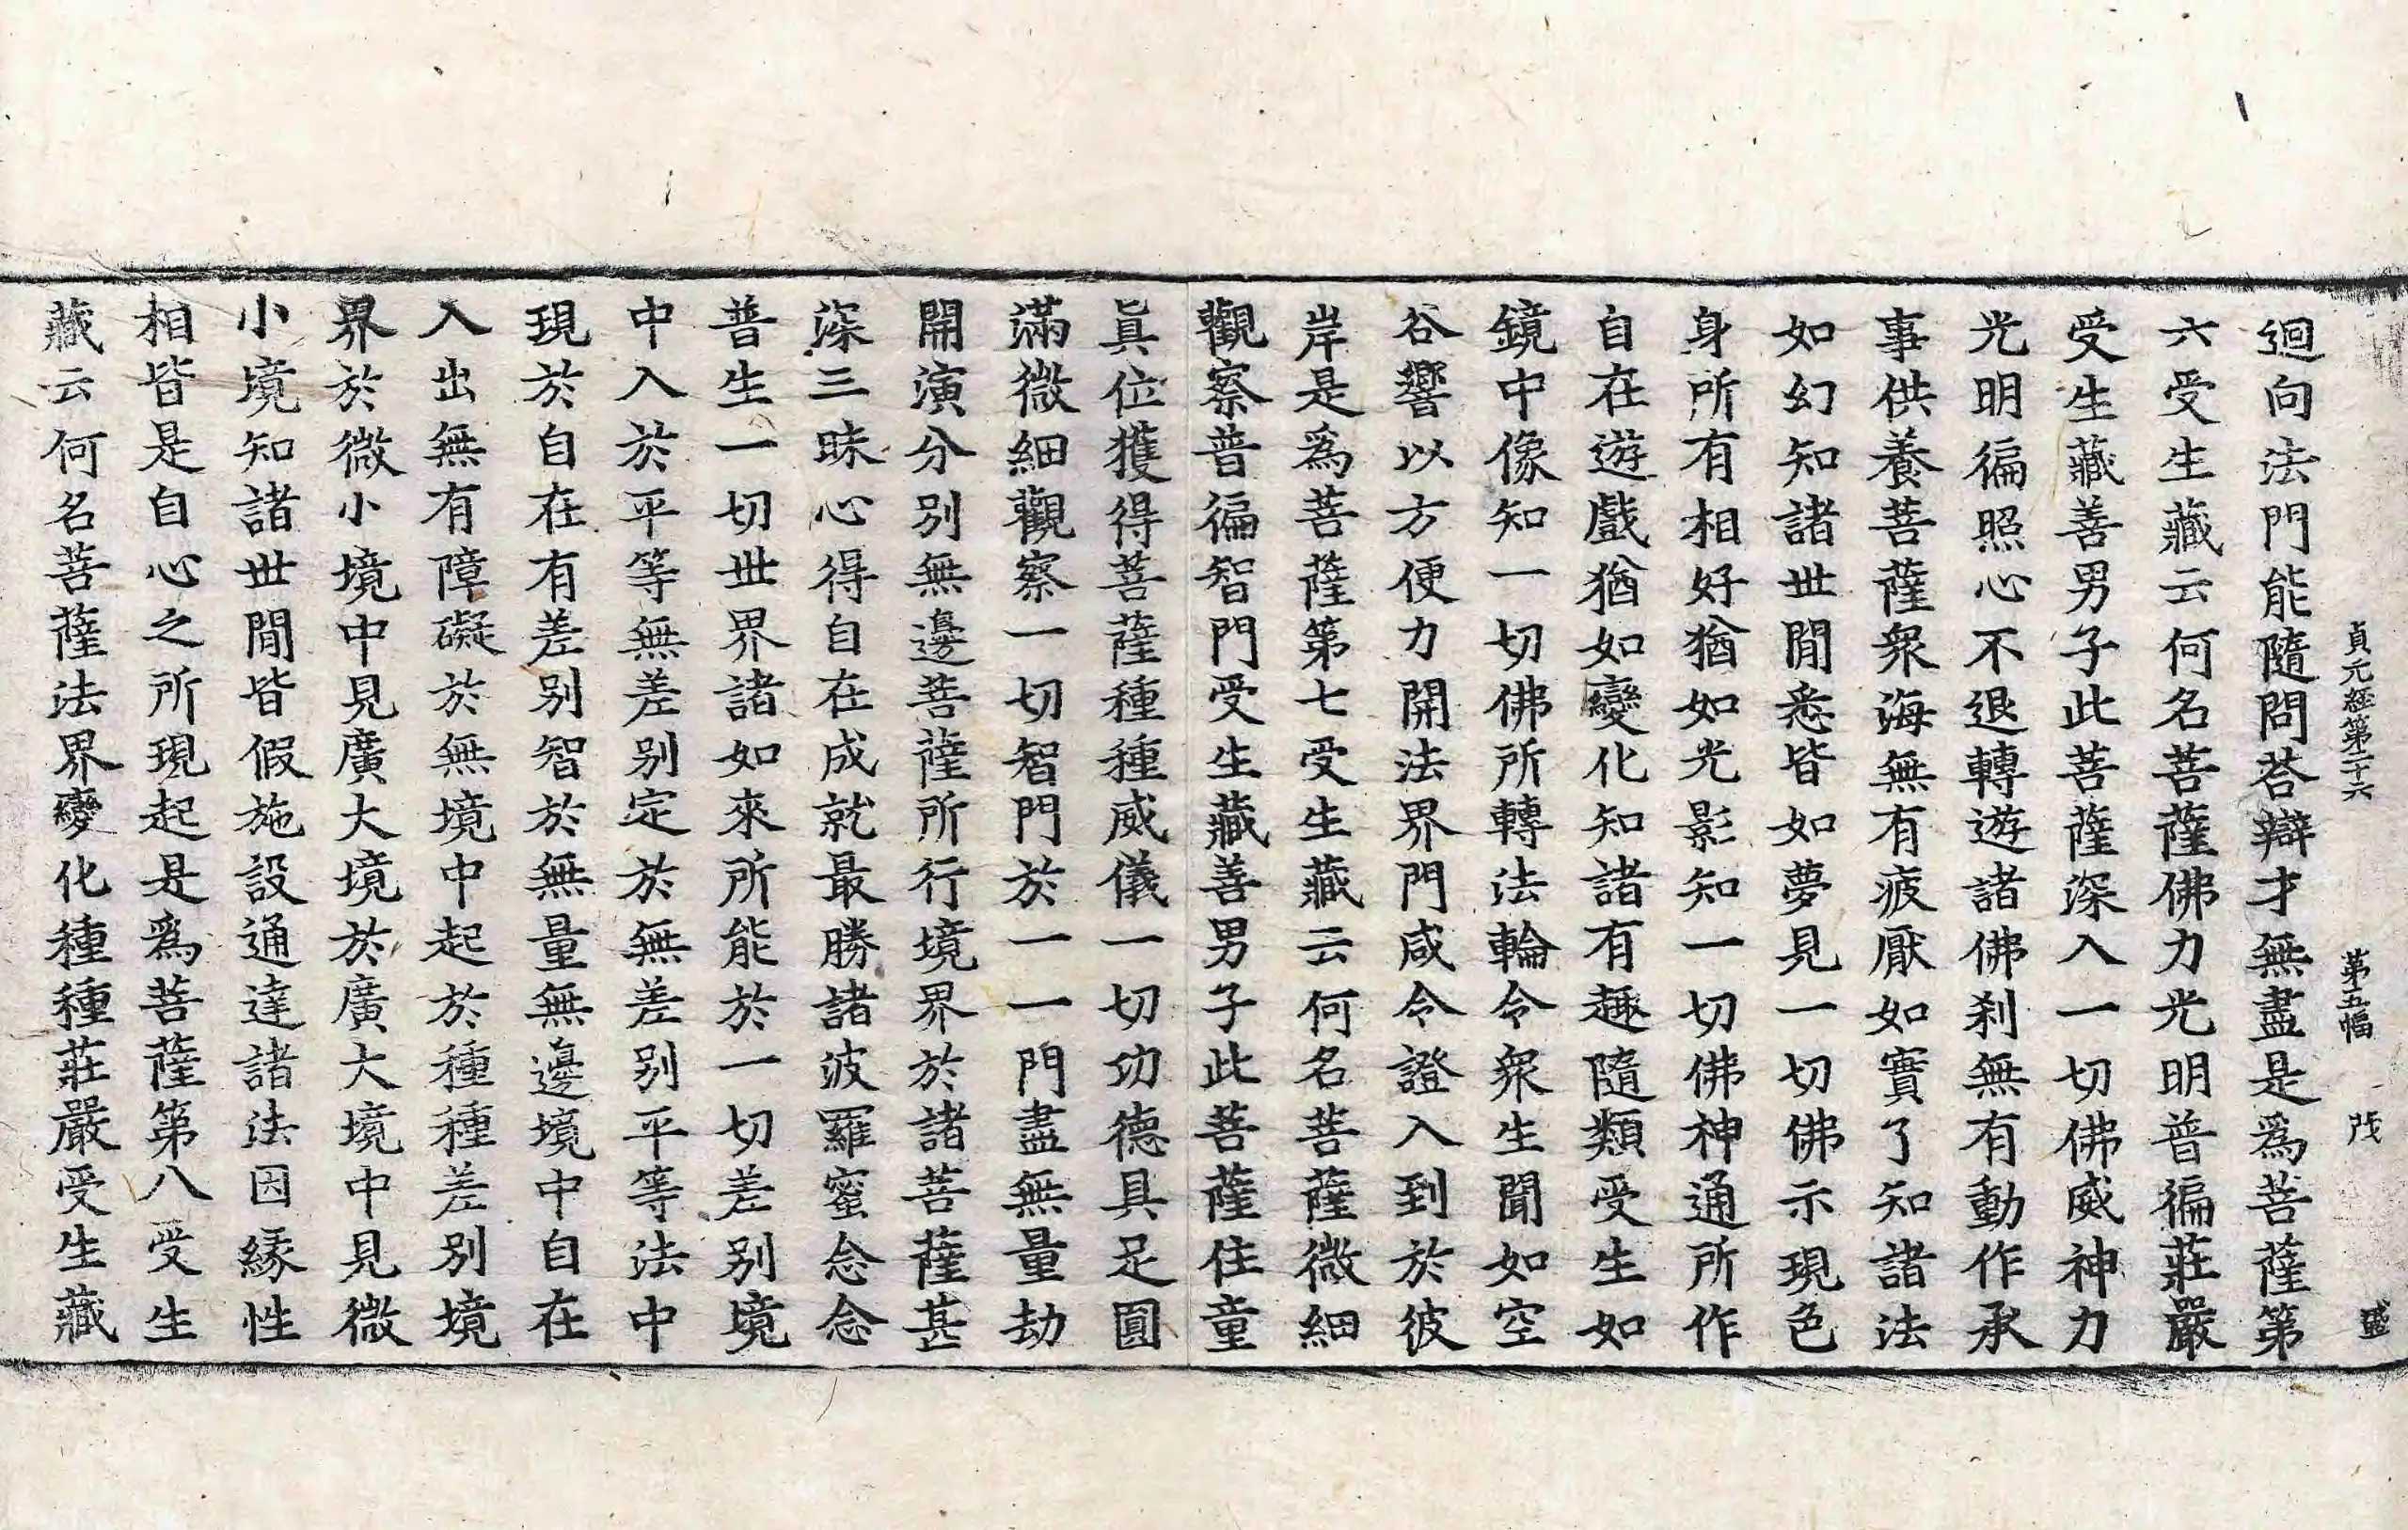 貞元経第二十六 第五幅 茂 盛
迴向法門能隨問荅辯才無盡是爲菩薩第
六受生藏云何名菩薩佛力光明普徧莊嚴
受生藏善男子此菩薩深入一切佛威神力
光明徧照心不退轉遊諸佛刹無有動作承
事供養菩薩衆海無有疲厭如實了知諸法
如幻知諸世閒悉皆如夢見一切佛示現色
身所有相好猶如光影知一切佛神通所作
自在遊戲猶如變化知諸有趣隨類受生如
鏡中像知一切佛所轉法輪令衆生聞如空
谷響以方便力開法界門咸令證入到於彼
岸是爲菩薩第七受生藏云何名菩薩微細
觀察普徧智門受生藏善男子此菩薩住童
眞位獲得菩薩種種威儀一切功德具足圓
滿微細觀察一切智門於一一門盡無量劫
開演分別無邊菩薩所行境界於諸菩薩甚
深三昧心得自在成就最勝諸波羅蜜念念
普生一切世界諸如來所能於一切差別境
中入於平等無差別定於無差別平等法中
現於自在有差別智於無量無邊境中自在
入出無有障礙於無境中起於種種差別境
界於微小境中見廣大境於廣大境中見微
小境知諸世閒皆假施設通達諸法因緣性
相皆是自心之所現起是爲菩薩第八受生
藏云何名菩薩法界變化種種莊嚴受生藏